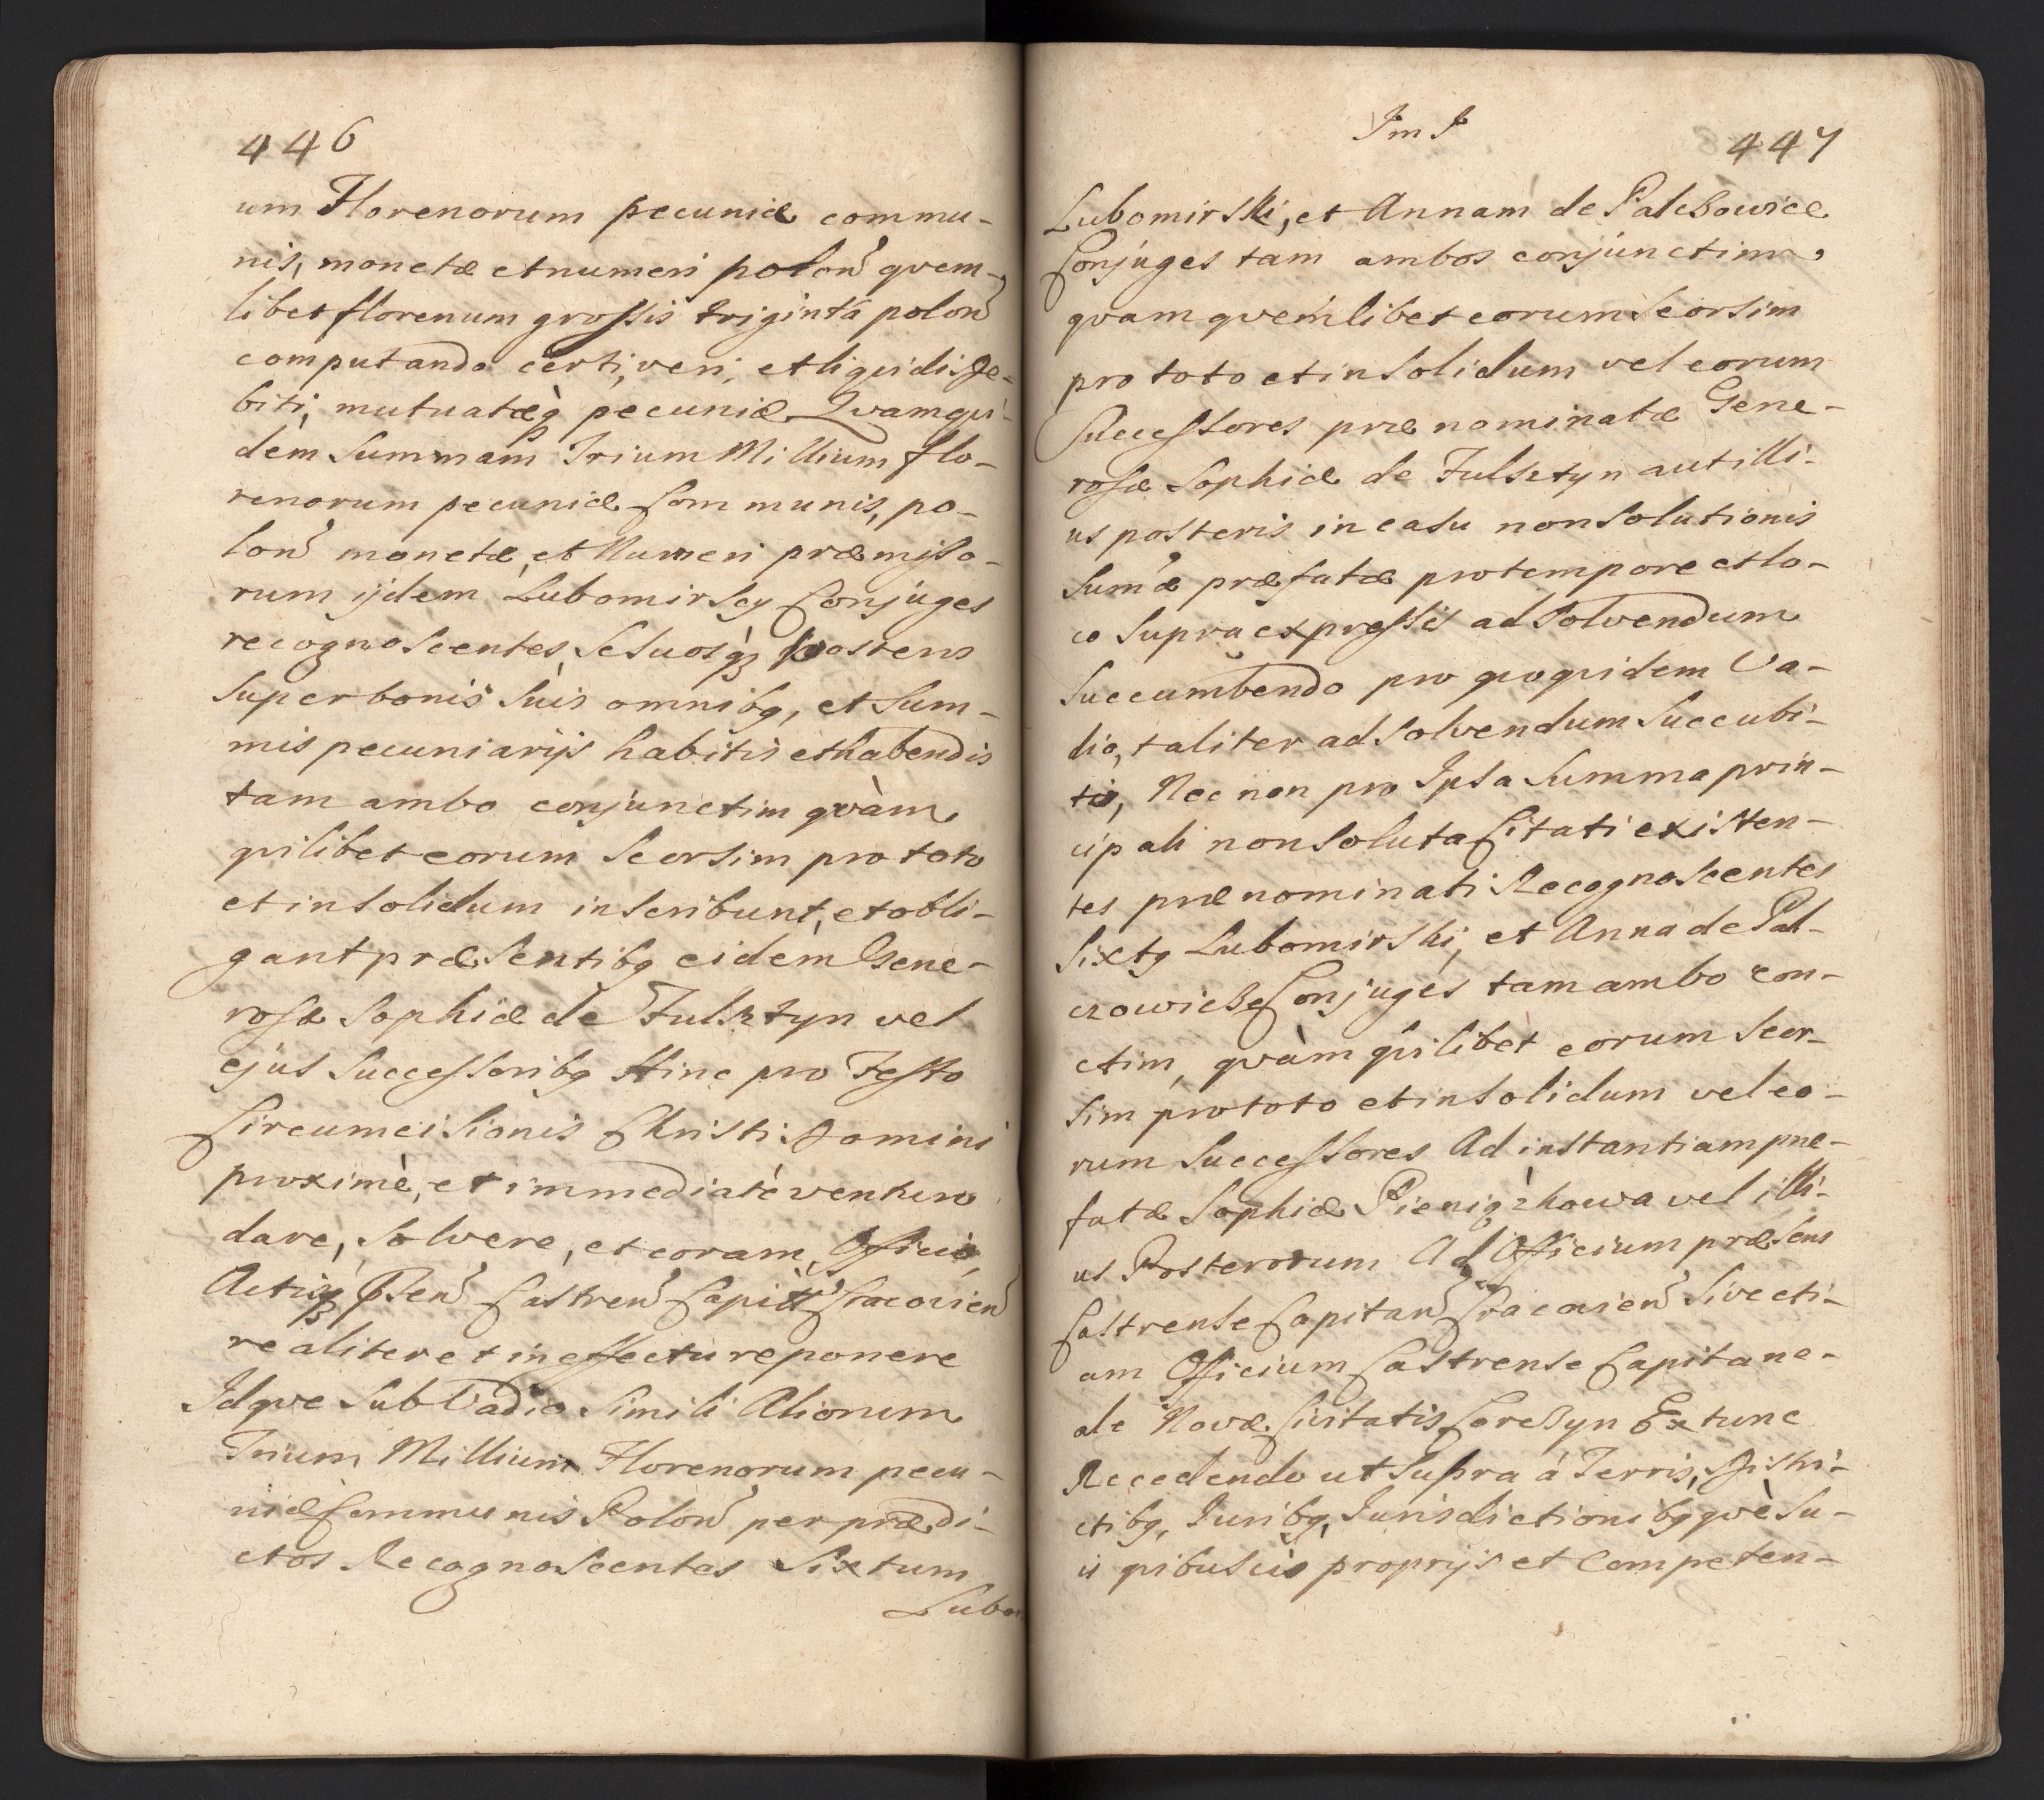 446
um Florenorum pecuniæ commu-
nis, monetæ et numeri polon̄ qvem-
libet florenum grossis triginta polon̄
computando certi, veri, et liqvidi de-
biti, mutuatæq pecuniæ Qvamqvi-
dem Summam Trium Millium flo-
renorum pecuniæ Communis, po-
lon̄ monetæ, et Numeri præmiſso-
rum ijdem Lubomirscy Conjuges
recognoscentes, Se Suosq̨ posteros
Super bonis Suis omnibq, et Sum-
mis pecuniarijs habitis et habendis
tam ambo conjunctim qvàm
qvilibet eorum Seorsim pro toto
et in Solidum inscribunt, et obli-
gant præsentibq eidem Gene-
rosæ Sophiæ de Fulsztyn vel
ejus Successoribq Hinc pro Festo
Circumcisionis Christi Domini
proximè, et immediatè venturo
dare, Solvere, et coram Officio,
Actisq̨ Pṡen̄ Castren̄ Capitt̄ Cracovien̄
realiter et in effectu reponere
Idqve Sub Vadio Simili Aliorum
Trium Millium Florenorum pecu-
niæ Communis Polon̄ per prædi-
ctos Recognoscentes Sixtum
Lubo
Im J
447
Lubomirski, et Annam de Palczowicze
Conjuges tam ambos conjunctim,
qvam qvemlibet eorum Seorsim
pro toto et in Solidum vel eorum
Successores prænominatæ Gene-
rosæ Sophiæ de Fulsztyn aut illi-
us posteris in casu non Solutionis
Sum̄æ præfatæ pro tempore et lo-
co Supra expressis ad Solvendum
Succumbendo pro qvoqvidem Va-
dio, taliter ad Solvendum Succubi-
to, Nec non pro Ipsa Summa prin-
cipali non Soluta Citati existen-
tes prænominati Recognoscentes
Sixtq Lubomirski, et Anna de Pal-
czowicze Conjuges tam ambo con-
ctim, qvàm qvilibet eorum Seor-
sim pro toto et in Solidum vel eo-
rum Successores Ad instantiam præ-
fatæ Sophiæ Pieniążkowa vel illi-
us Posterorum Ad Officium præsens
Castrense Capitan̄ Cracovien̄ Sive eti-
am Officium Castrense Capitane-
ale Novæ Civitatis Corczyn Ex tunc
Recedendo ut Supra á Terris, Distri-
ctibq, Juribq, Jurisdictionibqqvè Su-
is qvibuscis proprijs et Competen-